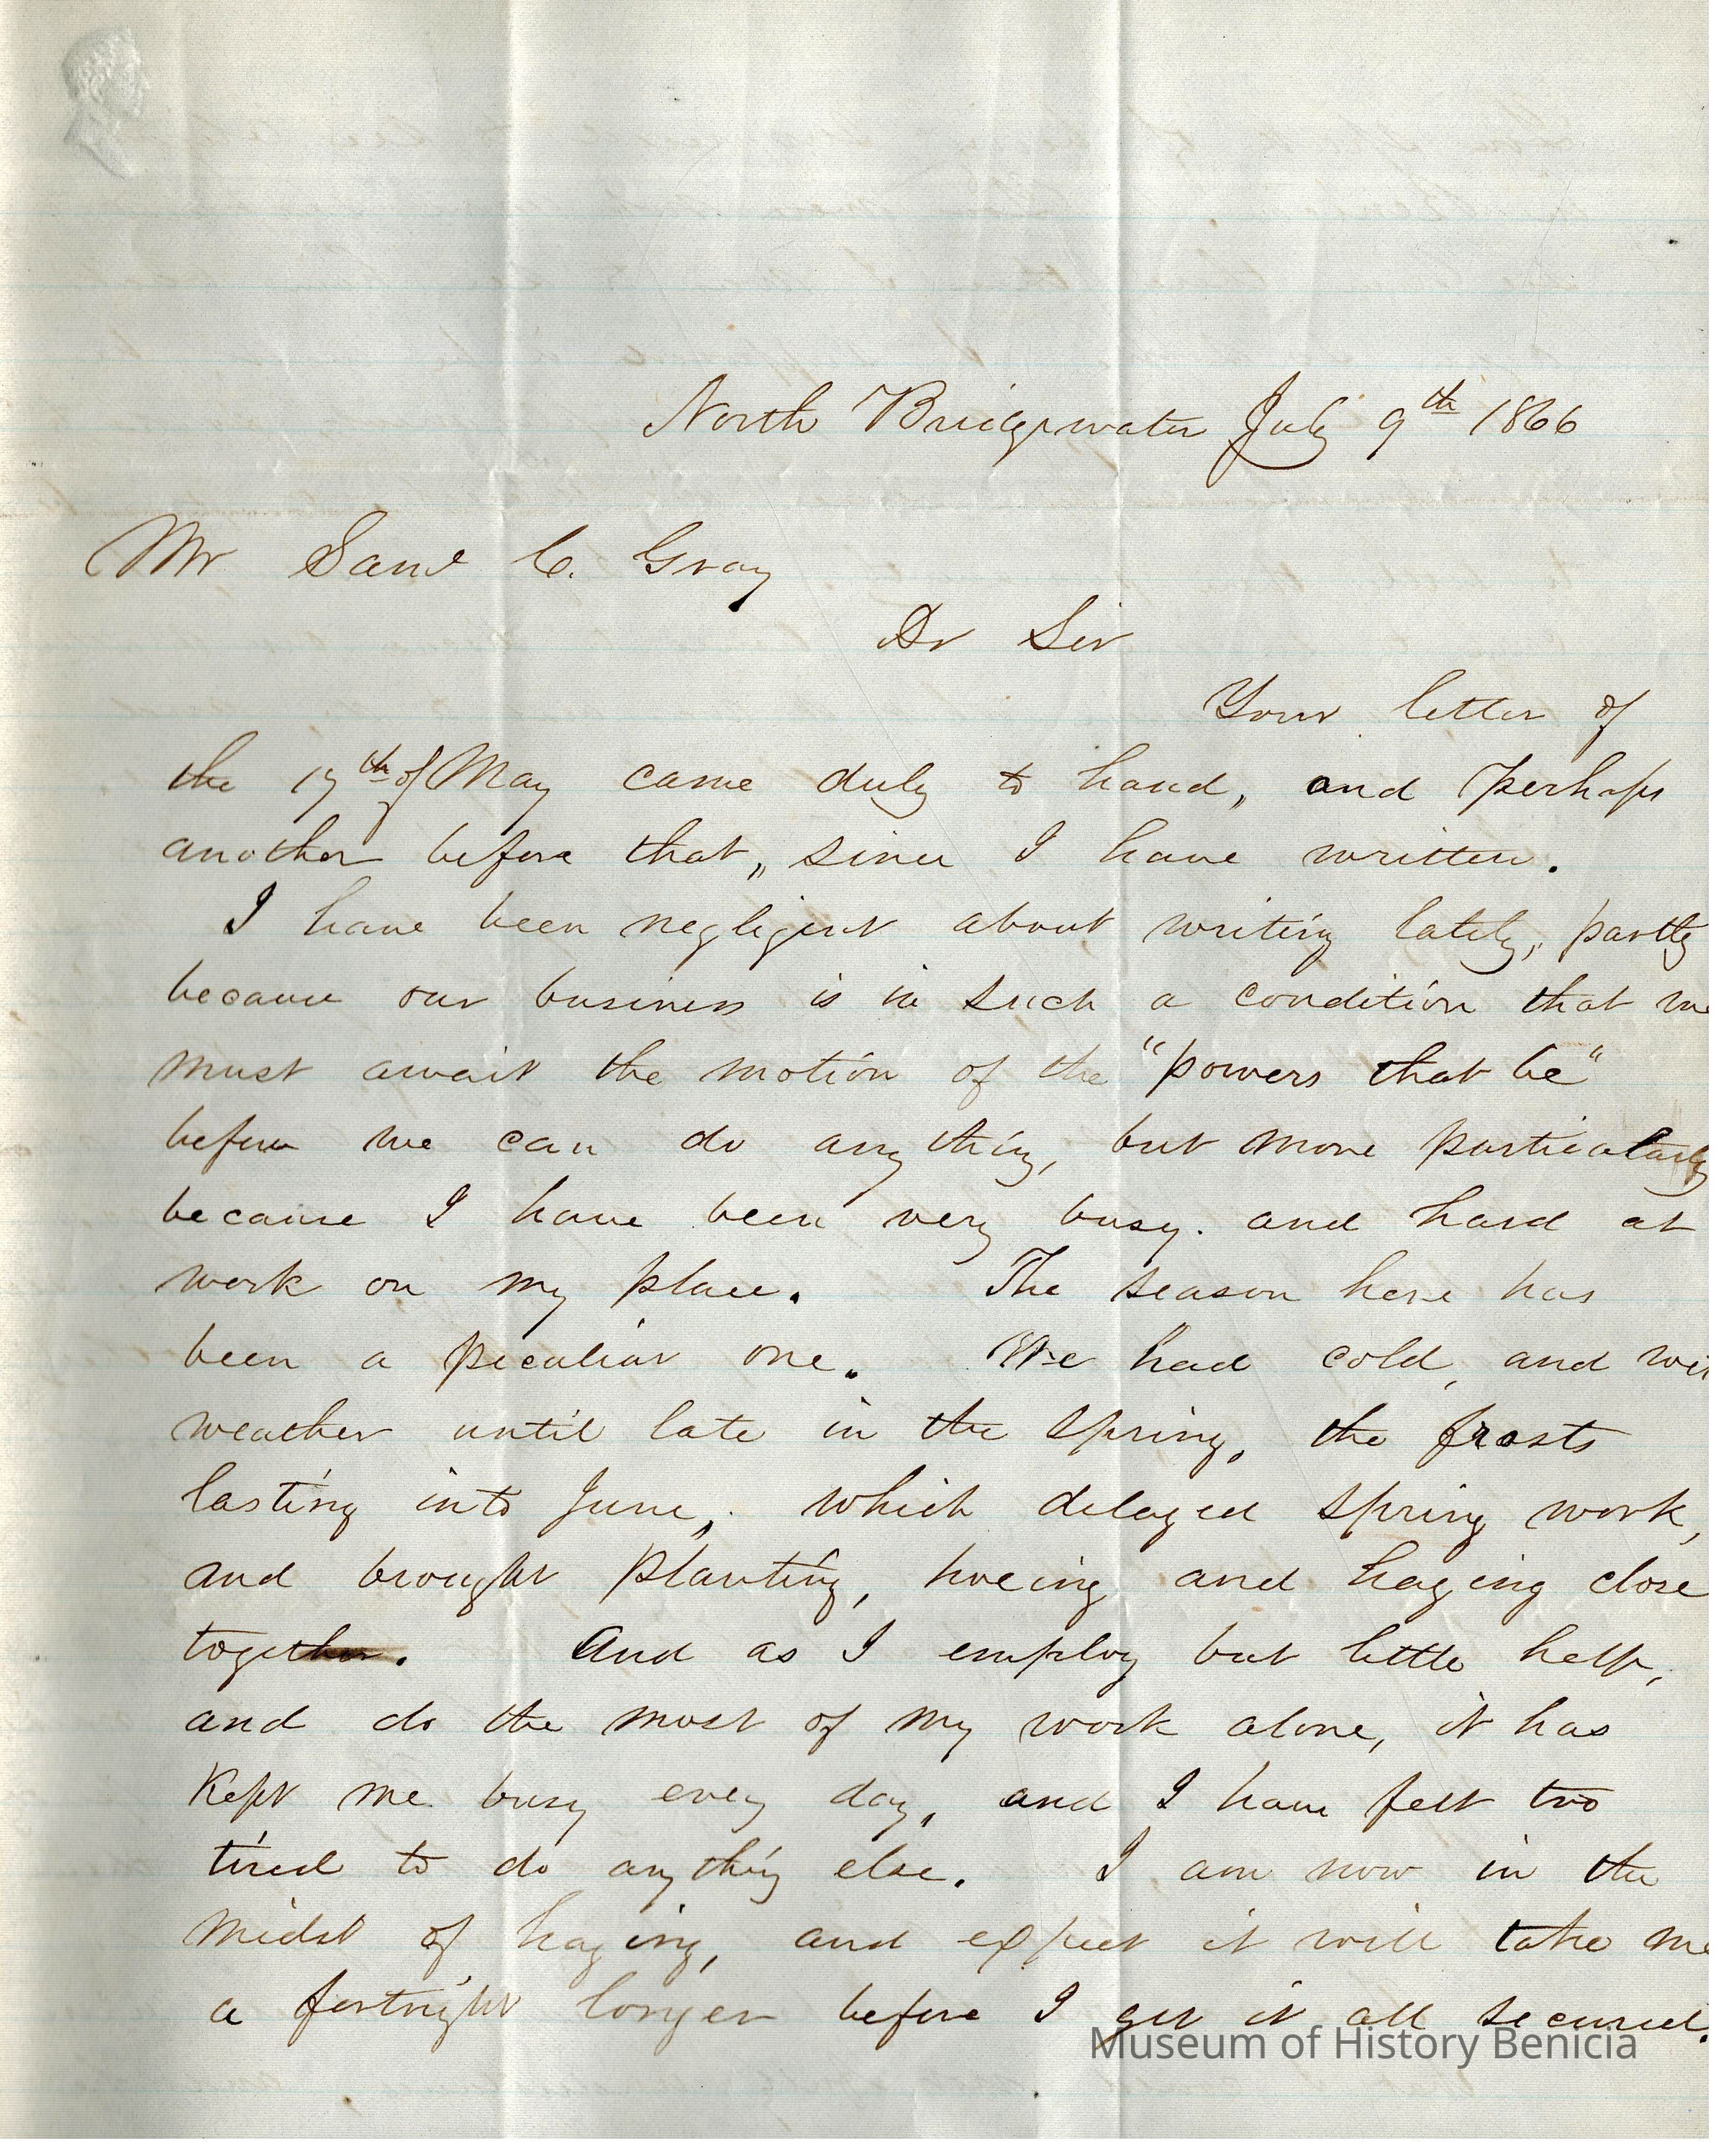 North Bridgewater July 9th 1866
Mr Saml C. Gray
Dr Sir
Your letter of
the 17th of May came duly to hand, and perhaps
another before that, since I have written.
I have been negligent about writing lately, partly
because our business is in such a condition that we
must await the motion of the "powers that be"
before we can do any thing, but more particularly
because I have been very busy. and hard at
work on my place. The season here has
been a peculiar one. We had cold, and wet
weather until late in the spring, the frosts
lasting into June, which delayed spring work,
and brought planting, hoeing and haying close
together. And as I employ but little help,
and do the most of my work alone, it has
Kept me busy every day, and I have felt too
tired to do any thing else. I am now in the
midst of haying, and expect it will take me
a fortnight longer before I get it all secured.
Museum of History Benicia